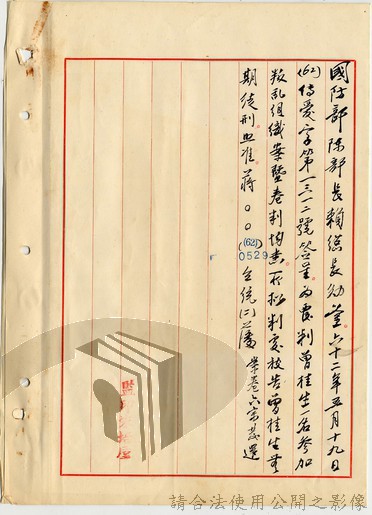 國防部陳部長賴總長勛鑒六十二年五月十九日
(62)倚愛字第一三一二號簽呈為覆判曾桂生一名參加
叛亂組織案暨卷判均悉所擬判處被告曾桂生無
期徒刑照准蔣○○(62)
0529
台統(二)
案卷六宗發還
請合法使用公開之影像